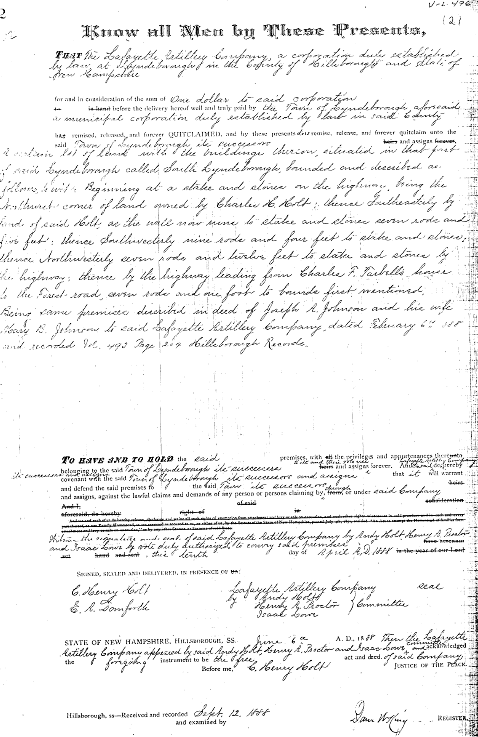 Vol. 496
121
Know all Men by These Presents,
THAT the Lafayette Artillery Company, a corporation duly established
by law, at Lyndeborough in the County of Hillsborough and State of
New Hampshire
for and in consideration of the sum of One dollar to said corporation
in hand before the delivery hereof well and truly paid by the Town of Lyndeborough aforesaid
a municipal corporation duly established by law in said County
has remised, released, and forever QUITCLAIMED, and by these presents does remise, release, and forever quitclaim unto the
said Town of Lyndeborough its successors heirs and assigns forever,
A certain lot of land with the buildings thereon, situated in that part
of said Lyndeborough called South Lyndeborough bounded and described as
follows, to wit: Beginning at a stake and stones on the highway, being the
Northwest corner of land owned by Charles H. Holt; thence Southeasterly by
land of said Holt as the wall now runs to stake and stones seven rods and
five feet; thence Southwesterly nine rods and four feet to stake and stones,
thence Northwesterly seven rods and twelve feet to stake and stones by
the highway; thence by the highway leading from Charles F. Tarbell's house
to the Forest road, seven rods and one foot to bounds first mentioned.
Being same premises described in deed of Joseph A. Johnson and his wife
Mary B. Johnson to said Lafayette Artillery Company, dated February 6th 188
and recorded Vol. 493 Page 209 Hillsborough Records.
TO HAVE AND TO HOLD the said premises, with all the privileges and appurtenances thereunto
belonging to the said Town of Lyndeborough its successors heirs and assigns forever. And hereby
covenant with the said Town of Lyndeborough its successors and assigns that it will warrant
and defend the said premises to the said Town its successors heirs
and assigns, against the lawful claims and demands of any person or persons claiming by, from, or under said Company
Witness the signature and seal of said Lafayette Artillery Company by Andy Holt Henry A. Proctor
and Isaac Lowe by vote duly authorized to convey said premises
this tenth day of April A.D. 1888 in the year of our Lord
SIGNED, SEALED AND DELIVERED, IN PRESENCE OF US:
C. Henry Holt
E. R. Danforth
Lafayette Artillery Company Seal
by Andy Holt
Henry A. Proctor } Committee
Isaac Lowe
STATE OF NEW HAMPSHIRE, HILLSBOROUGH, SS. June 6th A. D., 1888 Then the Lafayette
Artillery Company appeared by said Andy Holt, Henry A. Proctor and Isaac Lowe, Committee and acknowledged
the foregoing instrument to be the free act and deed of said Company.
Before me, C. Henry Holt JUSTICE OF THE PEACE.
Hillsborough, ss—Received and recorded Sept. 12, 1888
and examined by Dan W King REGISTER.